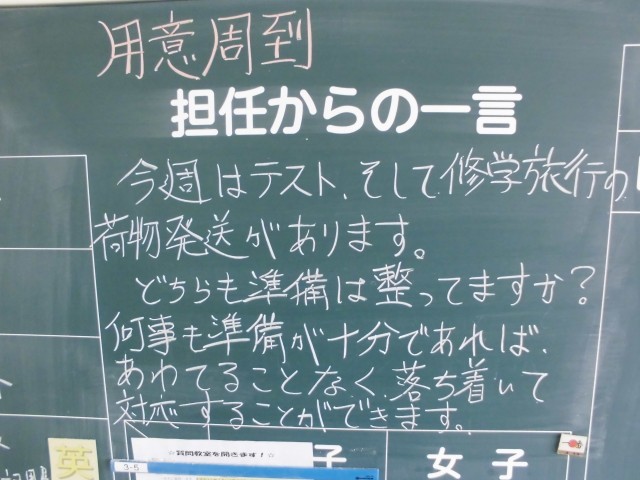 用意周到
担任からの一言
今週はテスト、そして修学旅行の
荷物発送があります。
どちらも準備は整ってますか？
何事も準備が十分であれば、
あわてることなく落ち着いて
対応することができます。
☆質問教室を開きます！☆
3-5
英
子
女子